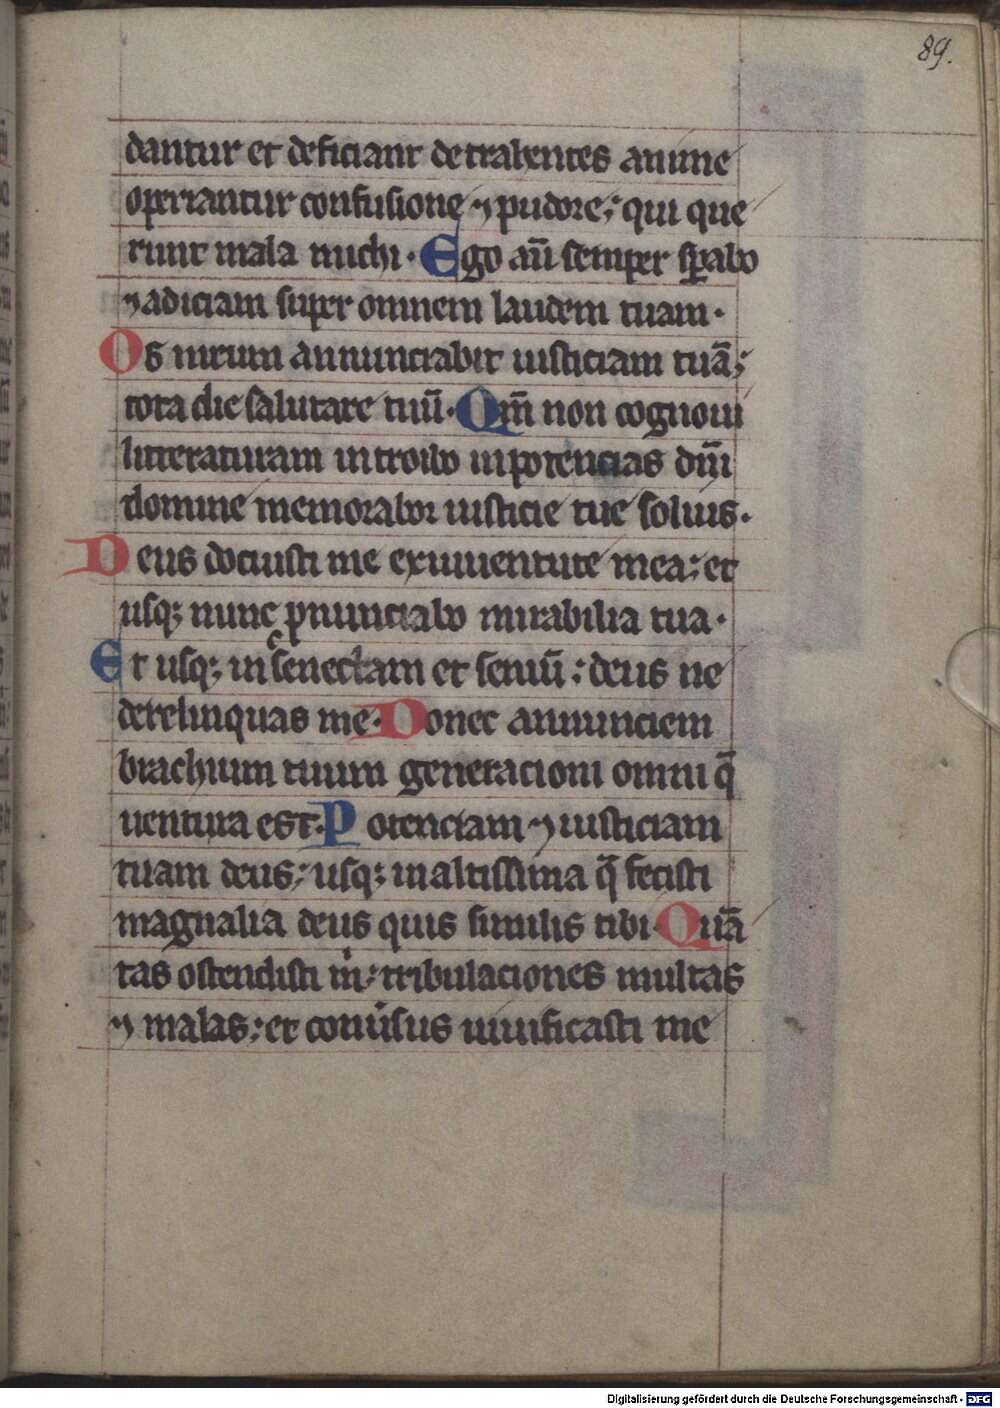 89.
dantur et deficiant detrahentes anime
operiantur confusione ⁊ pudore; qui que
runt mala michi · Ego aū semper sꝑabo
⁊ adiciam super omnem laudem tuam ·
Os meum annunciabit iusticiam tuā;
tota die salutare tuū · Qm̄ non cognoui
litteraturam introibo in potencias dn̄i
domine memorabor iusticie tue solius ·
Deus docuisti me ex iuuentute mea; et
usq; nunc ꝓnunciabo mirabilia tua ·
Et usq; in senectam et seniū : deus ne
derelinquas me · Donec annunciem
brachium tuum generacioni omni q̄
uentura est · Potenciam ⁊ iusticiam
tuam deus; usq; in altissima q̄ fecisti
magnalia deus quis similis tibi · Quā
tas ostendisti m̍; tribulaciones multas
⁊ malas; et conu̍sus uiuificasti me
Digitalisierung gefördert durch die Deutsche Forschungsgemeinschaft - DFG